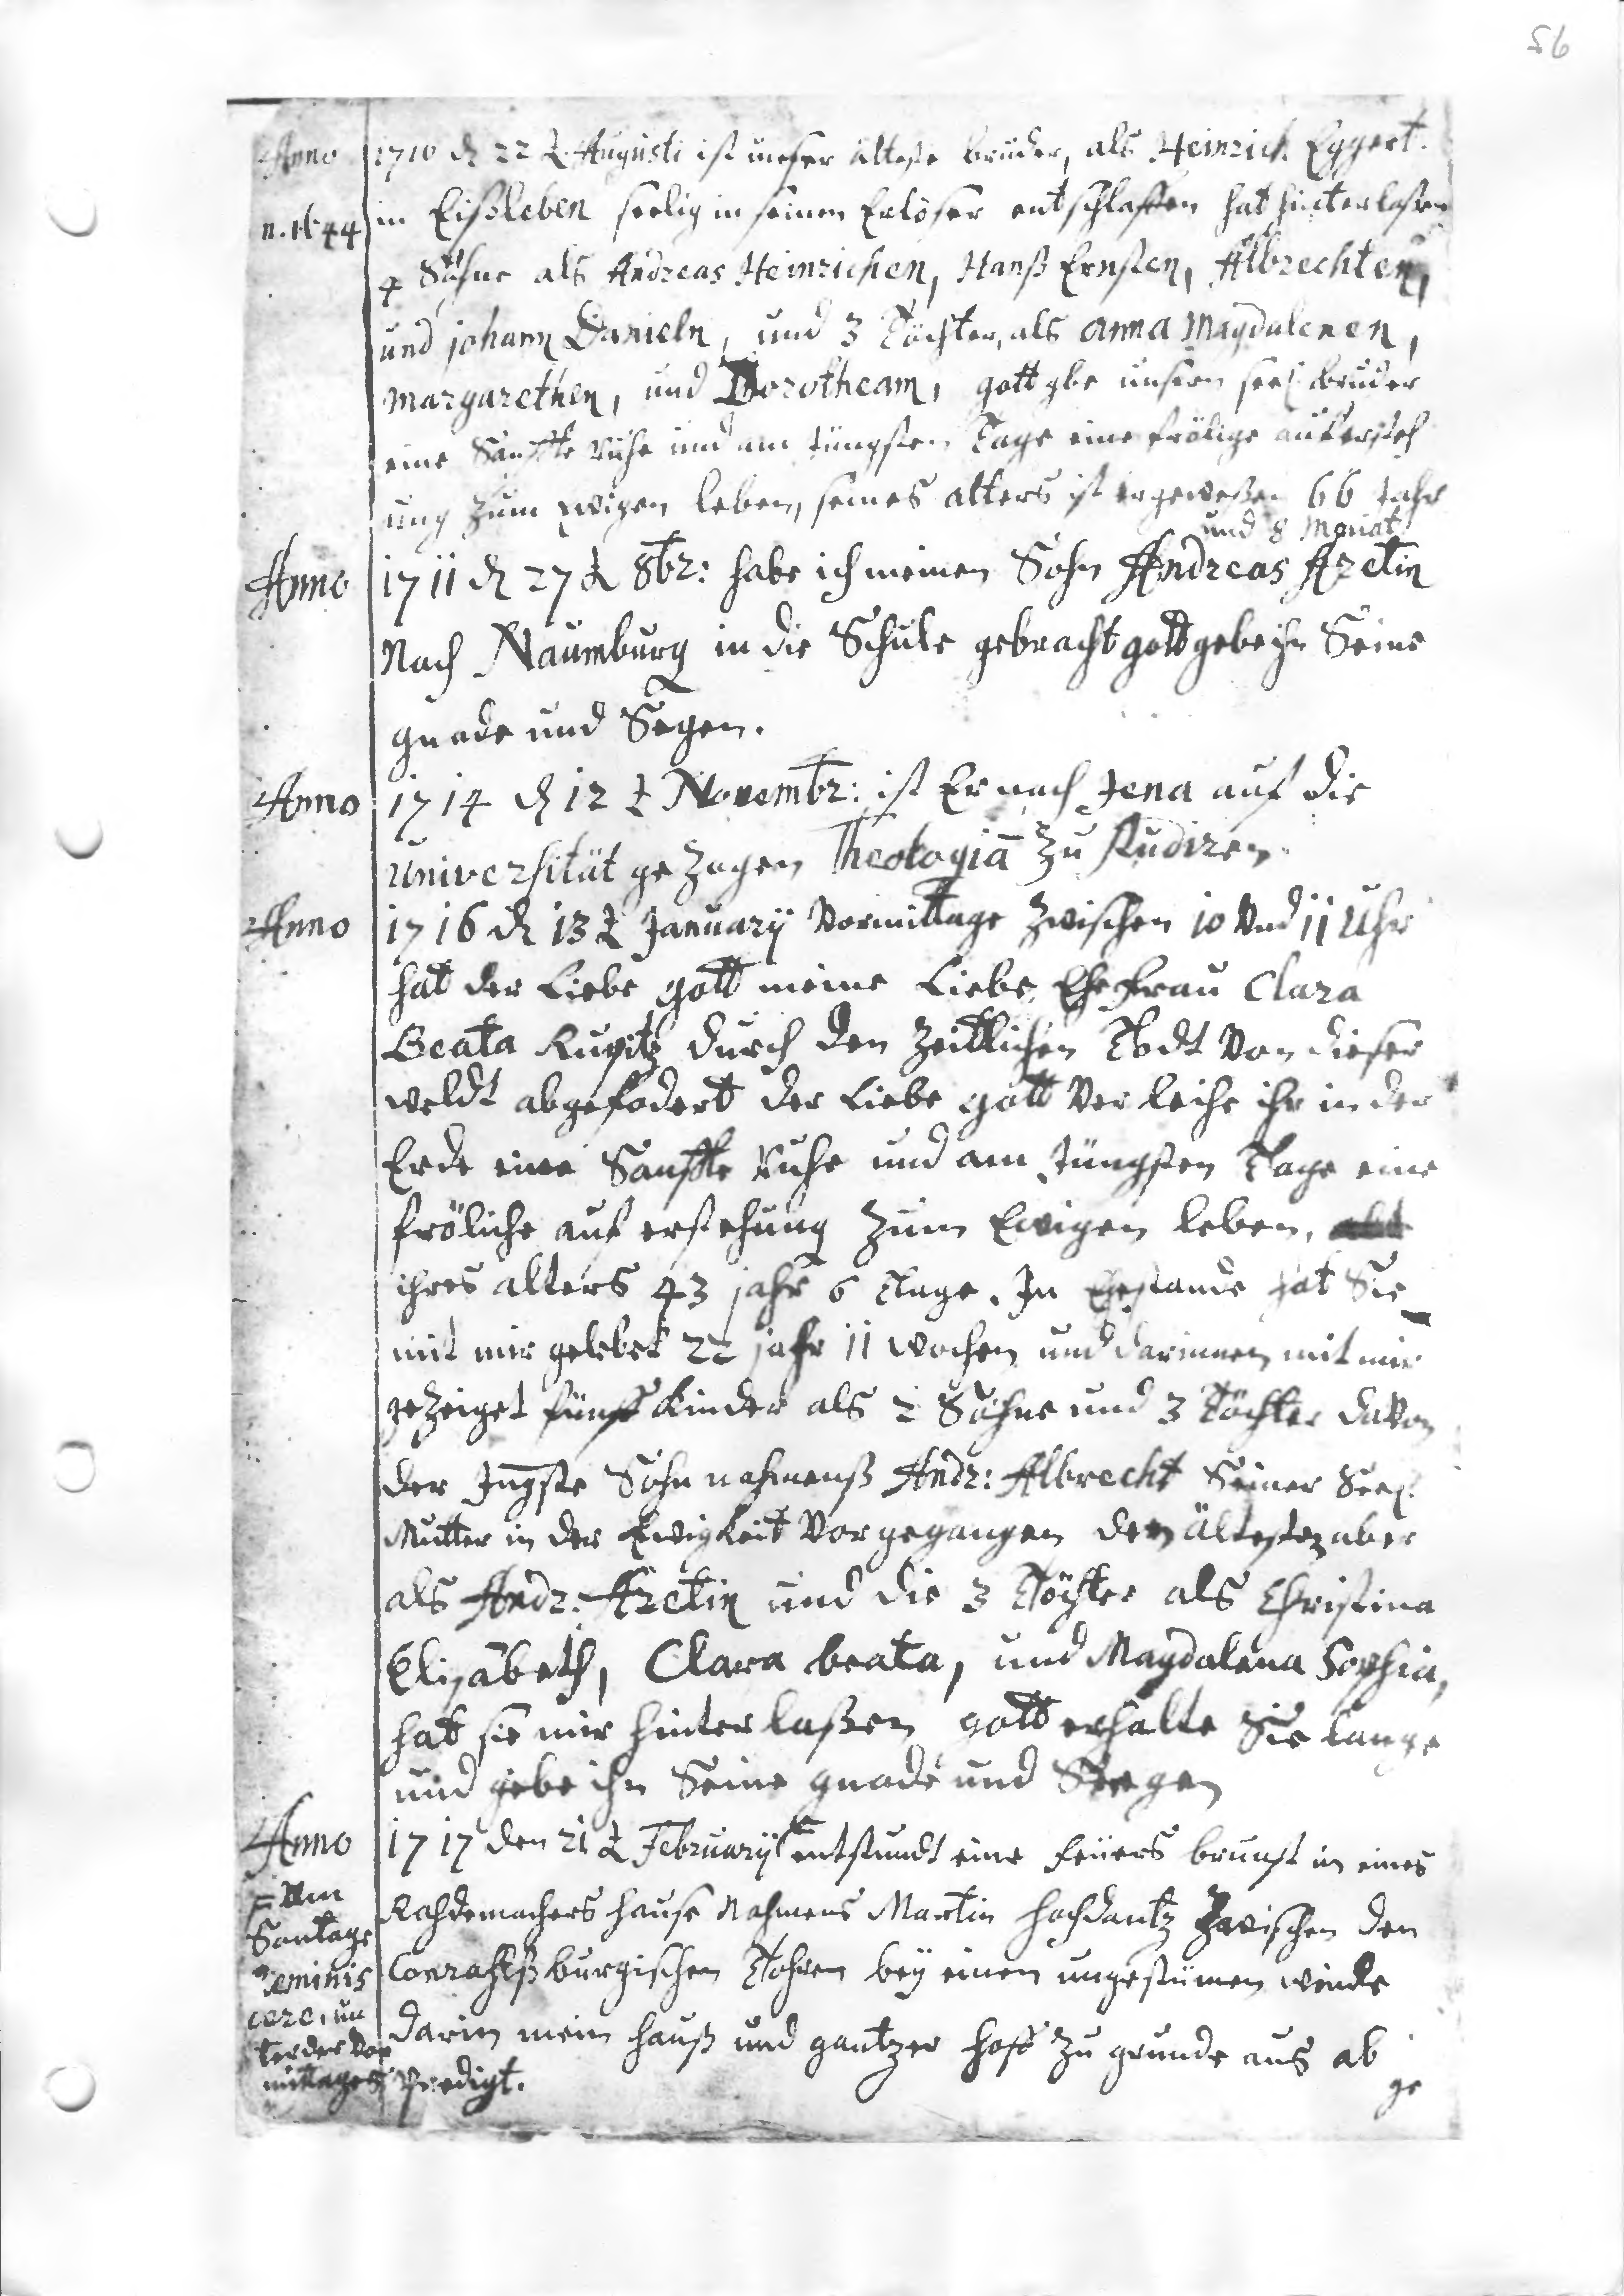 56
Anno 1710 d 22 t Augusti ist unser älteste bruder, als Heinrich Eggert.
n. 1644 in Eißleben seelig in seinen Erlöser entschlaffen hat hinterlaßen
4 Söhne als Andreas Heinrichen, Hanß Ernsten, Albrechten,
und johann Danieln, und 3 Töchter, als anna Magdalenen,
Margarethen, und Dorotheam, gott gbe unsern seel bruder
eine Sanffte ruhe und am Jüngsten Tage eine frölige auferste
ung zum ewigen leben, seines alters ist er geweßen 66 Jahr
und 8 Monat
Anno 1711 d 27 t 8br: habe ich meinen Sohn Andreas Aretin
Nach Naumburg in die Schule gebracht gott gebe ihn Seine
gnade und Segen.
Anno 1714 d 12 t Novembr: ist Er nach Jena auf die
Universität gezogen Theologiā zu studiren.
Anno 1716 d 13 t January Vormittage zwischen 10 Und 11 Uhr
hat der Liebe gott meine Liebe Ehefrau Clara
Beata durch den zeittlichen Todt Von dieser
weldt abgefodert der Liebe gott Verleihe ihr in der
Erde eine Sanffte Ruhe und am Jüngsten Tage eine
fröliche auf erstehung zum Ewigen leben,
ihres alters 43 jahr 6 Tage. In Ehestande hat Sie
mit mir gelebet 22 jahr 11 wochen und darinnen mit mir
gezeiget fünff kinder als 2 Söhne und 3 Töchter davon
der Jngste Sohn nahmenß Andr: Albrecht Seiner Seel.
Mutter in der Ewigkeit Vorgegangen den ältesten aber
als Andr: Aretin und die 3 Töchter als Christina
Elisabeth, Clara beata, und Magdalena Sophia,
hat sie mir hinterlaßen gott erhalte Sie lange
und gebe ihn Seine gnade und Seegen
Anno 1717 den 21 t February entstundt eine feuers brunst in eines
Am
Sontage
Reminis
cere, un
ter der Vor
mittages Predigt.
Rahdemachers hause Nahmens Martin hochdantz zwischen den
Conrahtßburgischen Tohren bey einen ungestümen winde
darin mein hauß und gantzer hoff zu grunde aus ab
ge